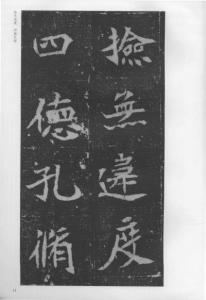 撿無違度
四德孔脩